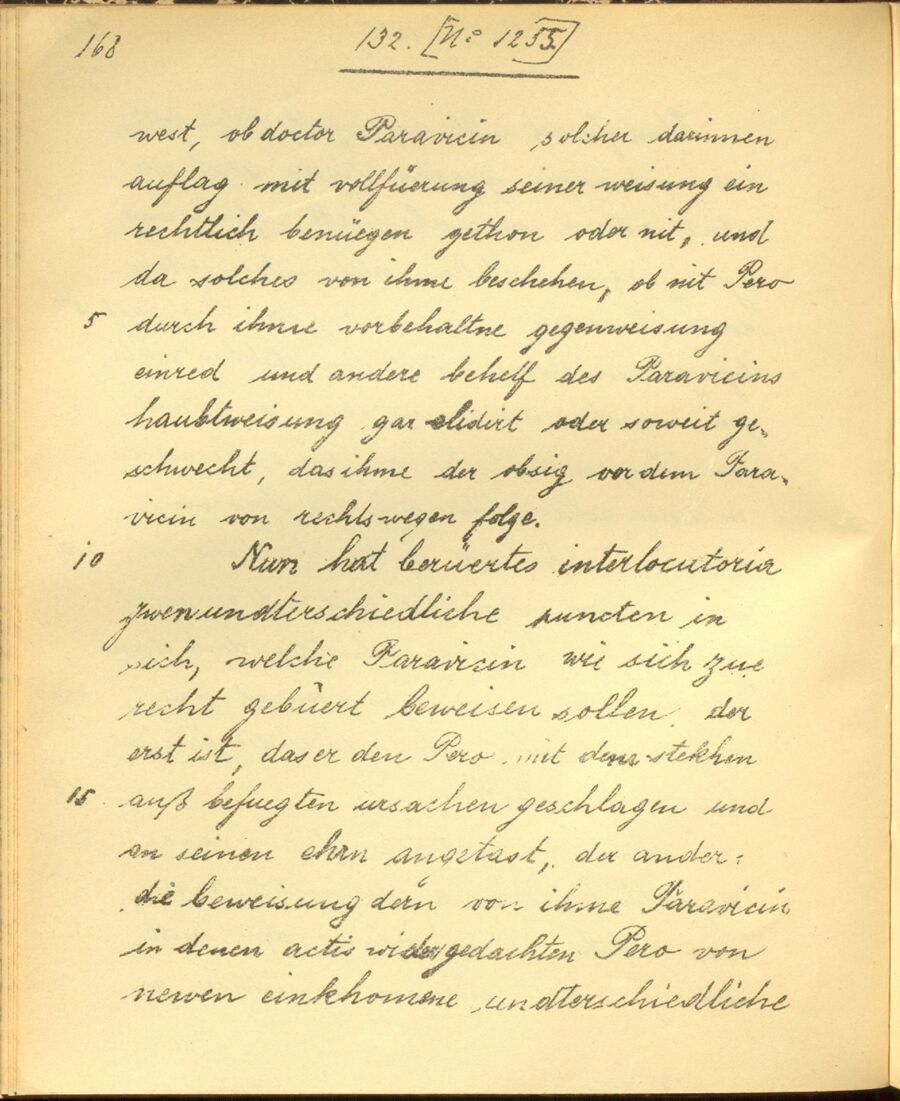 168
132. [No 1255.]
west, ob doctor Paravicin solcher darinnen
auflag mit vollfüerung seiner weisung ein
rechtlich benüegen gethon oder nit, und
da solches von ihme beschehen, ob nit Pero
5 durch ihme vorbehaltne gegenweisung
einred und andere behelf des Paravicins
haubtweisung gar elidirt oder soweit ge-
schwecht, das ihme der obsig vor dem Para-
vicin von rechtswegen folge.
10 Nun hat berüertes interlocutoria
zwen undterschiedliche puncten in
sich, welche Paravicin wie sich zue
recht gebüert beweisen sollen der
erst ist, das er den Pero mit dem stekhen
15 auß befuegten ursachen geschlagen und
an seinen ehrn angetast, der ander:
die beweisung dern von ihme Paravicin
in denen actis wider gedachten Pero von
newen einkhomene undterschiedliche